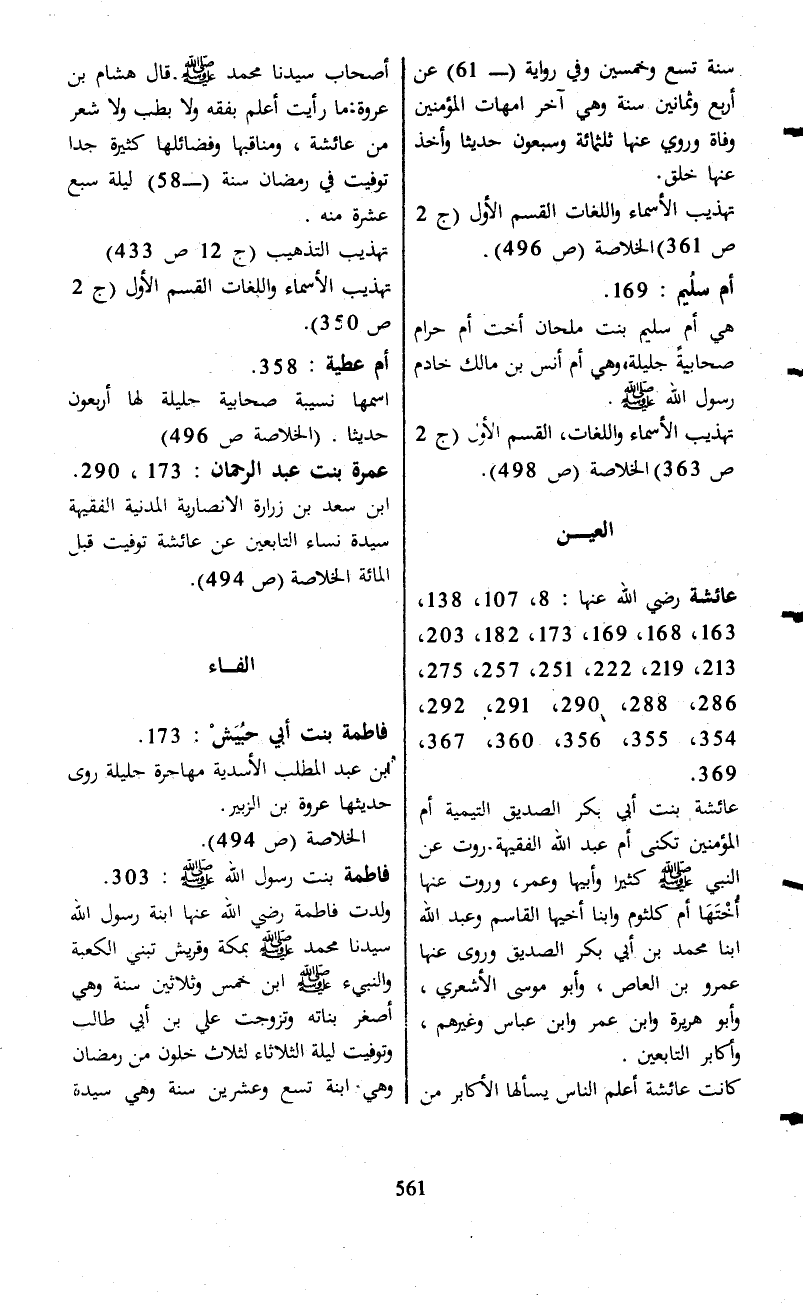 سنة تسع وخمسين وفي رواية (ـــ 61) عن
أربع وثمانين سنة وهي آخر امهات المؤمنين
وفاة وروي عنها ثلثمائة وسبعون حديثا وأخذ
عنها خلق.
تهذيب الأسماء واللغات القسم الأول (ج 2
ص 361) الخلاصة (ص 496).
أم سلُيم : 169.
هي أم سليم بنت ملحان أخت أم حرام
صحابيةً جليلة، وهي أم أنس بن مالك خادم
رسول الله ﷺ .
تهذيب الأسماء واللغات، القسم الأول (ج 2
ص 363) الخلاصة (ص 498).
العيـــن
عائشة رضي الله عنها : 8، 107، 138،
163، 168، 169، 173، 182، 203،
213، 219، 222، 251، 257، 275،
286، 288، 290، 291، 292،
354، 355، 356، 360، 367،
369.
عائشة بنت أبي بكر الصديق التيمية أم
المؤمنين تكنى أم عبد الله الفقيهة. روت عن
النبي ﷺ كثيرا وأبيها وعمر، وروت عنها
أُخْتَهَا أم كلثوم وابنا أخيها القاسم وعبد الله
ابنا محمد بن أبي بكر الصديق وروى عنها
عمرو بن العاص ، وأبو موسى الأشعري ،
وأبو هريرة وابن عمر وابن عباس وغيرهم ،
وأكابر التابعين .
كانت عائشة أعلم الناس يسألها الأكابر من
أصحاب سيدنا محمد ﷺ. قال هشام بن
عروة: ما رأيت أعلم بفقه ولا بطب ولا شعر
من عائشة ، ومناقبها وفضائلها كثيرة جدا
توفيت في رمضان سنة (ـــ58) ليلة سبع
عشرة منه .
تهذيب التذهيب (ج 12 ص 433)
تهذيب الأسماء واللغات القسم الأول (ج 2
ص 350).
أم عطية : 358.
اسمها نسيبة صحابية جليلة لها أربعون
حديثا . (الخلاصة ص 496)
عمرة بنت عبد الرحمان : 173 ، 290.
ابن سعد بن زرارة الانصارية المدنية الفقيهة
سيدة نساء التابعين عن عائشة توفيت قبل
المائة الخلاصة (ص 494).
الفـــاء
فاطمة بنت أبي حبُيَشْ : 173.
ابن عبد المطلب الأسدية مهاجرة جليلة روى
حديثها عروة بن الزبير.
الخلاصة (ص 494).
فاطمة بنت رسول الله ﷺ : 303.
ولدت فاطمة رضي الله عنها ابنة رسول الله
سيدنا محمد ﷺ بمكة وقريش تبني الكعبة
والنبيء ﷺ ابن خمس وثلاثين سنة وهي
أصغر بناته وتزوجت علي بن أبي طالب
وتوفيت ليلة الثلاثاء لثلاث خلون من رمضان
وهي ابنة تسع وعشرين سنة وهي سيدة
561